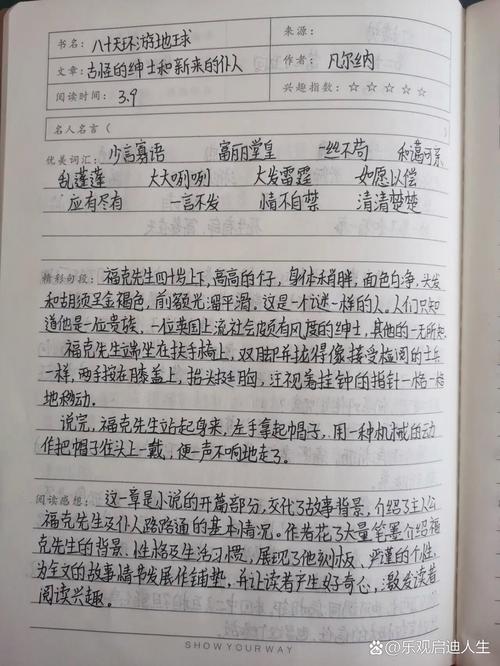 书名：八十天环游地球
来源：
文章：古怪的绅士和新来的仆人
作者：凡尔纳
阅读时间：3.9
兴趣指数：☆☆☆☆☆
名人名言（
优美词汇：少言寡语 富丽堂皇 一丝不苟 和蔼可亲
乱蓬蓬 大大咧咧 大发雷霆 如愿以偿
应有尽有 一言不发 情不自禁 清清楚楚
精彩句段：福克先生四十岁上下，高高的个子，身体不肖胖，面色白净，头发
和胡须呈金褐色，前额光溜平滑。这是个谜一样的人。人们只知
道他是一位贵族，一位英国上流社会颇有风度的绅士，其他的一无所知。
福克先生端坐在扶手椅上，双脚并拢得像接受检阅的士兵
一样，两手按在膝盖上，抬头挺胸，注视着挂钟的指针一格一格
地移动。
说完，福克先生站起身来，左手拿起帽子，用一种机械的动
作把帽子往头上一戴，便一声不响地走了。
阅读感想：这一章是小说的开篇部分，交代了故事背景，介绍了主人公
福克先生及仆人路路通的基本情况。作者花了大量笔墨介绍福
克先生的背景、性格及生活习惯，展现了他刻板、严谨的个性，
为全文的故事情节发展作铺垫，并让读者产生好奇心，激发读者
阅读兴趣。
SHOW YOUR WAY
@乐观启迪人生